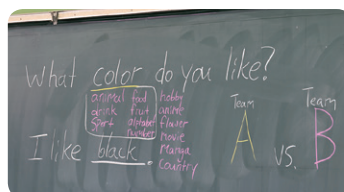 What color do you like?
animal food hobby
drink fruit anime
sport alphabet flower
number movie
Manga
Country
I like black.
Team Team
A vs. B